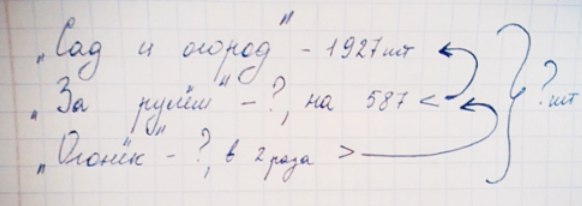 „Сад и огород" - 1927 шт
„За рулём" - ?, на 587 < ? шт
„Огонёк" - ?, в 2 раза >